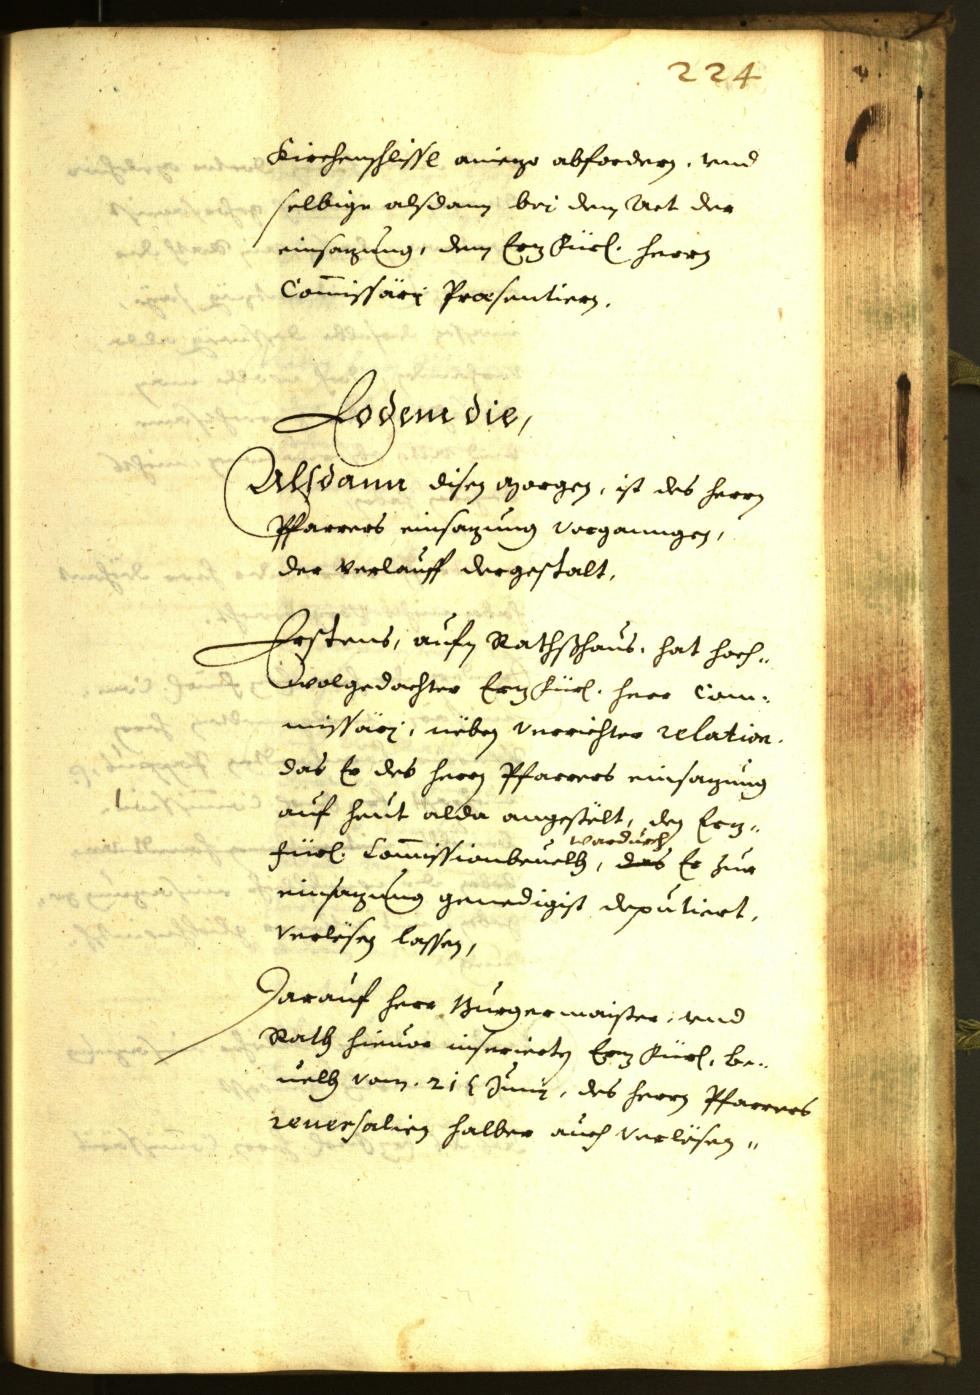 224
Kirchenschlissl aniezo abfordern, vnd
selbige alsdann bei dem Act der
einsazung, dem Erz Fürl. herrn
Com̄issārj Præsentiern.
Eodem die,
Alsdann disen Morgen, ist des herrn
Pfarrers einsazung vorganngen,
der verlauff dergestalt,
Erstens, aufm Rathßhaus, hat hoch-
wolgedachter Erz Fürl. herr Com-
missārj, neben verrichter relation.
das Er des herrn Pfarrers einsazung
auf heut alda angestelt, den Erz-
fürl. Com̄issionbeuelh, wardurch Er zur
einsazung genedigist deputiert,
verlesen lassen,
Darauf herr Burgermaister, vnd
Rath hieuor inserierten Erz Fürl. be-
uelh vom. 21t Junij, des herrn Pfarrers
reuersalien halber auch verlesen